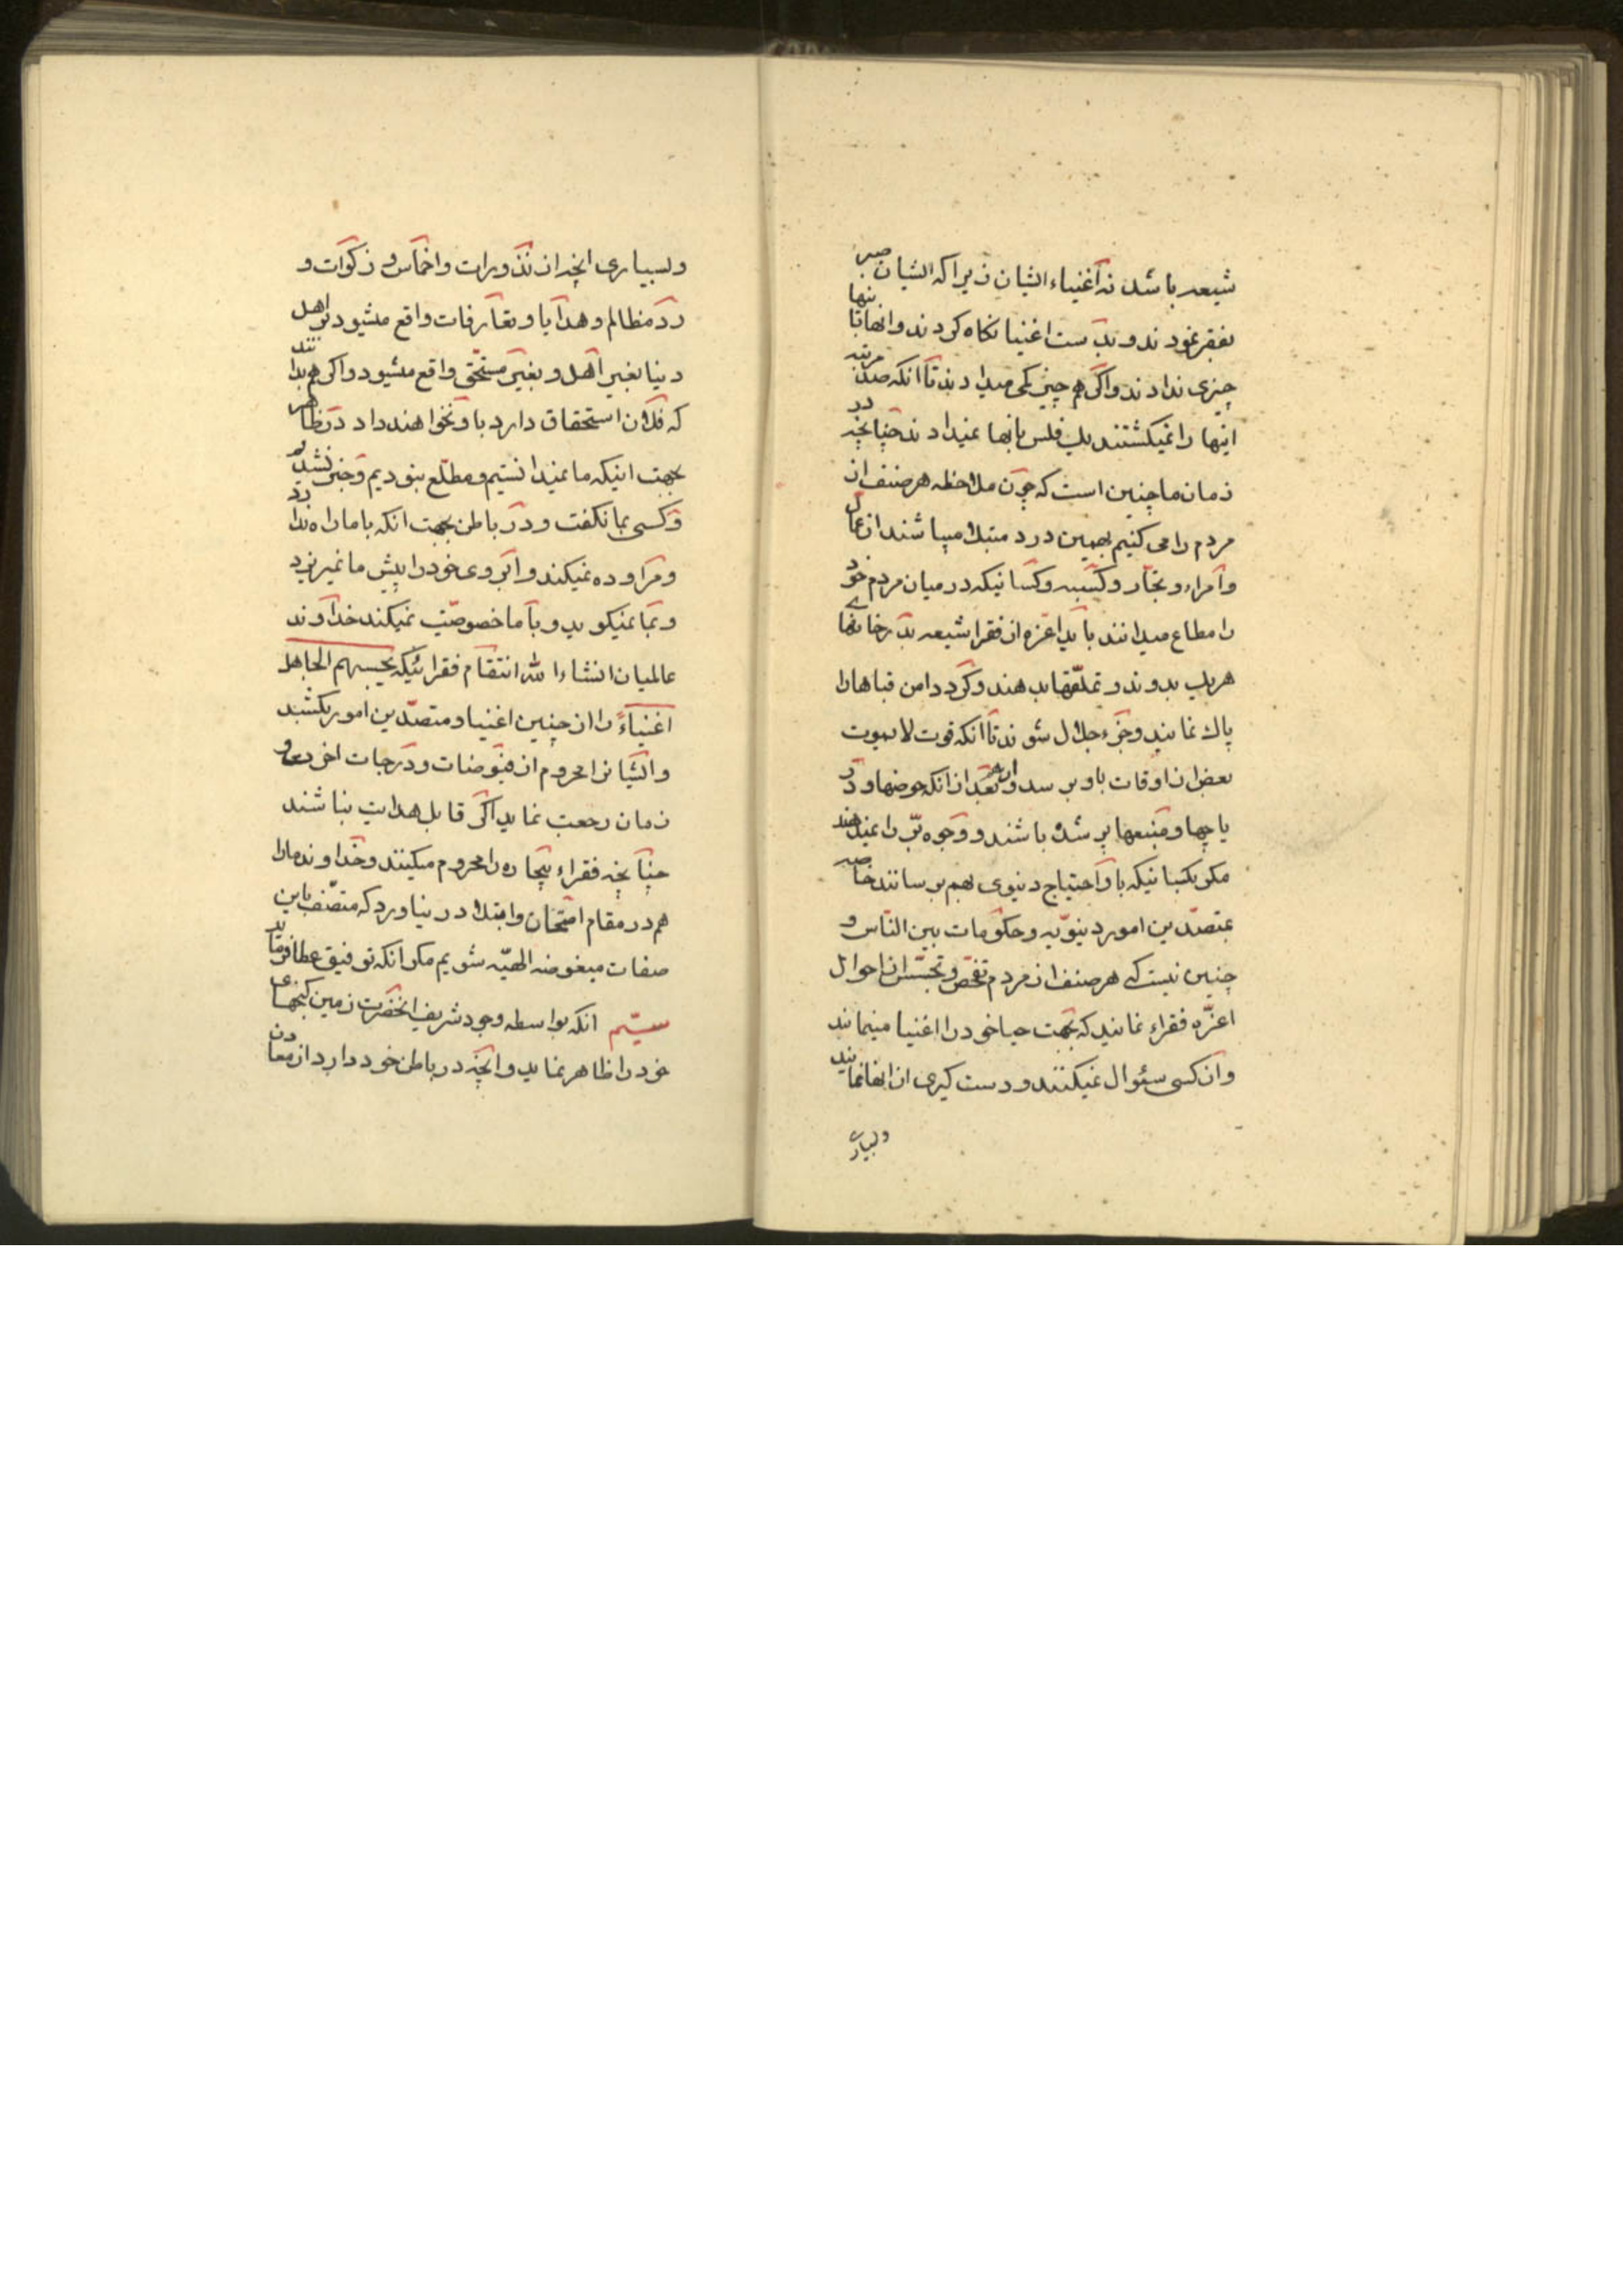 شیعه باشد نه اغنیاء ایشان زیرا که ایشان صبر
بفقر نمودند و بدست اغنیا نکاه کردند و انها باینها
چیزی ندادند و اکر هم چیز کمی میدادند تا انکه صد مرتبه
اینها را نمیکشتند یک فلس بانها نمیدادند چنانچه در
زمان ما چنین است که چون ملاحظه هر صنف از
مردم را می کنیم بهمین درد مبتلا میباشند از عمال
و امراء و تجار و کسبه و کسانیکه در میان مردم خود
را مطاع میدانند باید اعزه از فقرا شیعه بدر خانهای
هریک بدوند و تملقها بدهند و کرد دامن قباها را
پاک نمایند و جزء جلال شوند تا انکه قوت لایموت
بعض از اوقات باو برسد و ان هم بعد از انکه حوضها و در
یاچها و منبعها پر شده باشند و وجوه بر را نمیدهند
مکر بکسانیکه باو احتیاج دنیوی بهم برسانند خاصه
بمتصدین امور دنیویه و حکومات بین الناس و
چنین نیست که هر صنف از مردم تفحص و تجسس از احوال
اعزه فقراء نمایند که بجهت حیا خود را اغنیا مینمایند
و از کسی سئوال نمیکنند و دست کیری از انها نمایند
و بسیاری
و بسیاری انچه از نذورات و اخماس و زکوات و
رد مظالم و هدایا و تعارفات واقع میشود بر اهل
دنیا بغیر اهل و بغیر مستحق واقع میشود و اکر هم بدانند
که فلان استحقاق دارد باو نخواهند داد در ظاهر
بجهت اینکه ما نمیدانستیم و مطلع نبودیم و خبر نشدیم
و کسی بما نکفت و در باطن بجهت انکه با ما راه ندارد
و مراوده نمیکند و ابروی خود را پیش ما نمیریزد
و بما نمیکوید و با ما خصوصیت نمیکند خداوند
عالمیان انشاء الله انتقام فقرائیکه یحسبهم الجاهل
اغنیاء را از چنین اغنیا و متصدین امور بکشد
و ایشانرا محروم از فیوضات و درجات اخرویه و
زمان رجعت نماید اکر قابل هدایت نباشند
چنانچه فقراء بیچاره را محروم میکنند و خداوند ما را
هم در مقام امتحان و ابتلا در نیاورد که متصف باین
صفات مبغوضه الهیه شویم مکر انکه توفیق عطا فرماید
سیم انکه بواسطه وجود شریف انحضرت زمین کنجهای
خود را ظاهر نماید و انچه در باطن خود دارد از معادن